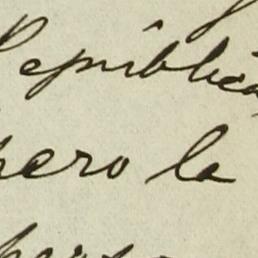 República
pero la